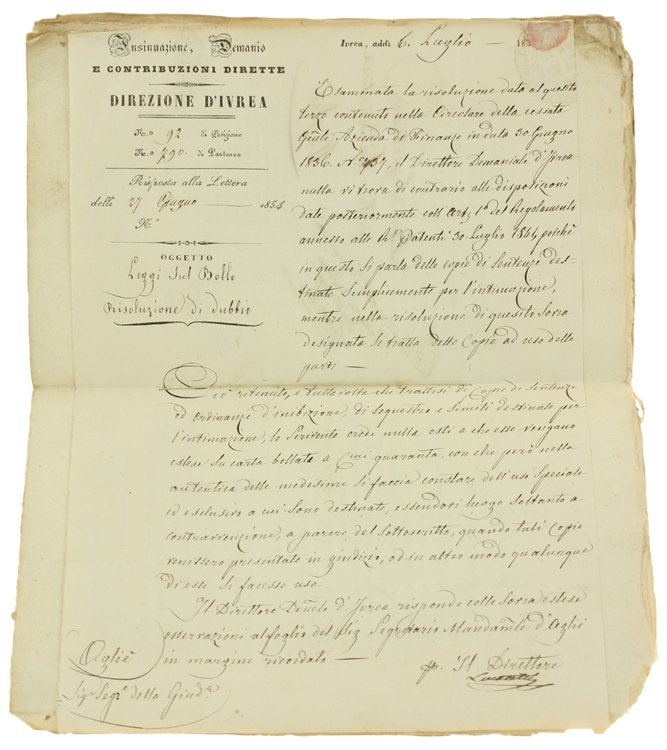 Insinuazione, Demanio
E CONTRIBUZIONI DIRETTE
DIREZIONE D'IVREA
N.o 92 di Posizione
N.o 790 di Partenza
Risposta alla Lettera
delli 27 Giugno 1854
N.o
OGGETTO
Leggi sul Bollo
Risoluzione di dubbio
Ivrea, addì 6. Luglio 185
Esaminata la risoluzione data al quesito
terzo contenuto nella Circolare della cessata
Gen.le Azienda di Finanze in data 30 Giugno
1836. N.o 737, il Direttore Demaniale d'Ivrea
nulla vi trova di contrario alle disposizioni
date posteriormente coll'Art. 1.o del Regolamento
annesso alle R.e Patenti 30 Luglio 1844, poichè
in questo si parla delle copie di Sentenze des-
tinate semplicemente per l'intimazione,
mentre nella risoluzione di quesito sovra
designata si tratta delle Copie ad uso delle
parti —
Ciò ritenuto, e tuttavolta che trattisi di Copie di sentenze
od ordinanze d'inibizione, di sequestro e simili destinate per
l'intimazione, lo Scrivente crede nulla osti a che esse vengano
estese su carta bollata a Cmi quaranta, con che però nella
autentica delle medesime si faccia constare dell'uso speciale
ed esclusivo a cui sono destinate, essendovi luogo soltanto a
contravvenzione, a parere del Sottoscritto, quando tali Copie
venissero presentate in giudizio, od in altro modo qualunque
di esse si facesse uso.
Il Direttore Dem.le d'Ivrea risponde colle sovra estese
osservazioni al foglio del Sig Segretario Mandam.le d'Agliè
in margine ricordato —
p. Il Direttore
Agliè
Sig.r Seg.o della Giud.a